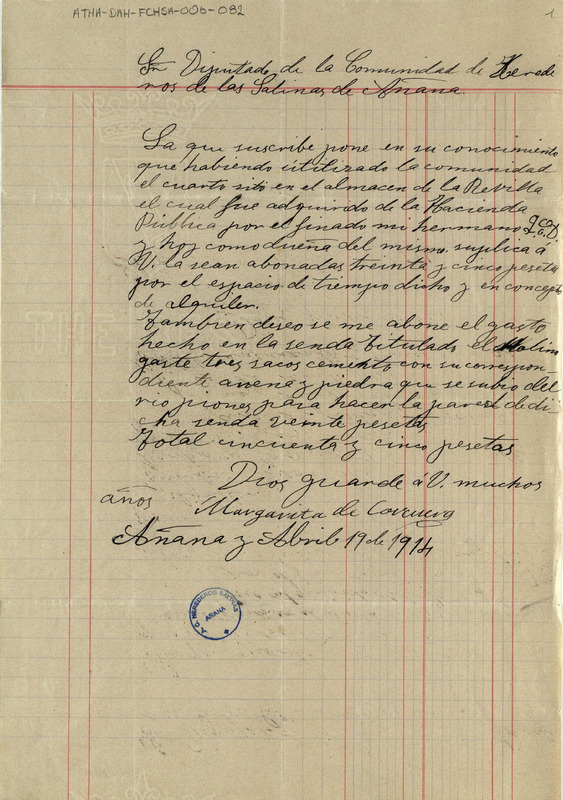 ATHA-DAH-FCHSA-006-082
1
Sr Diputado de la Comunidad de Herede
ros de las Salinas de Añana.
La que suscribe pone en su conocimiento
que habiendo utilizado la comunidad
el cuarto sito en el almacen de la Revilla
el cual fue adquirido de la Hacienda
Pública por el finado mi hermano
y hoy como dueña del mismo suplica á
V. la sean abonadas treinta y cinco pesetas
por el espacio de tiempo dicho y en concepto
de alquiler.
Tambien deseo se me abone el gasto
hecho en la senda titulado el Molino
gaste tres sacos cemento con su correspon-
diente arena y piedra que se subio del
rio piones para hacer la pared de di
cha senda veinte pesetas
Total cincuenta y cinco pesetas
Dios guarde á V. muchos
años
Margarita de
Añana y Abril 19 de 1914
A. C. HEREDEROS SALINAS
AÑANA